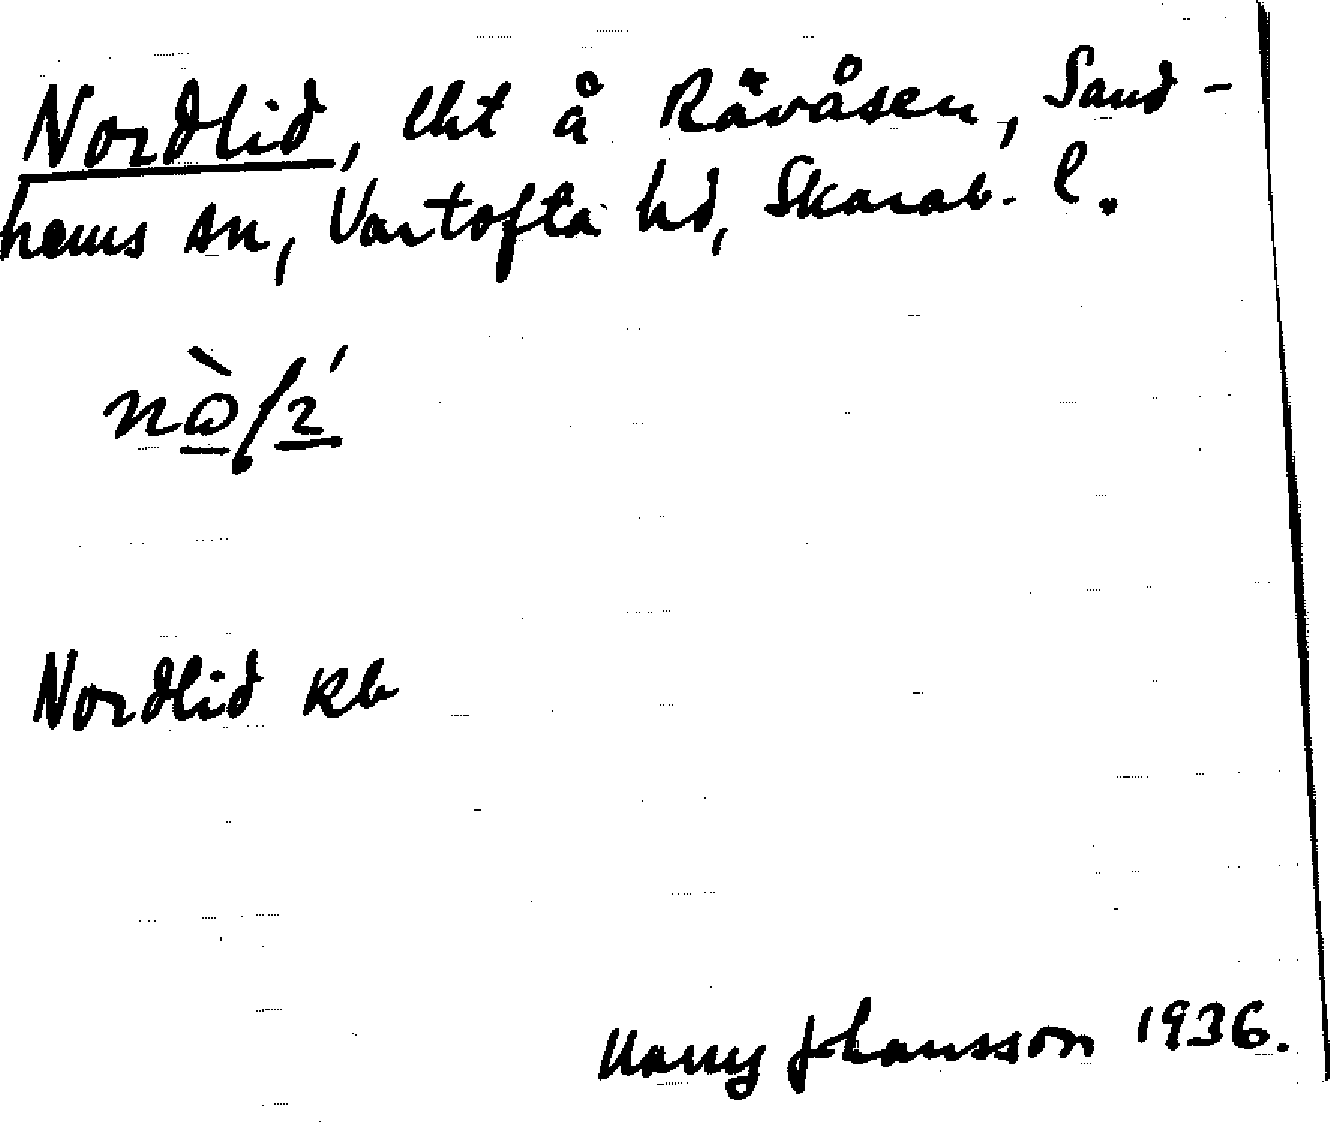 Nordlid, lht å Rävåsen, Sand-
hems sn, Vartofta hd, Skarab. l.
Nordlid kb
Harry Johansson 1936.